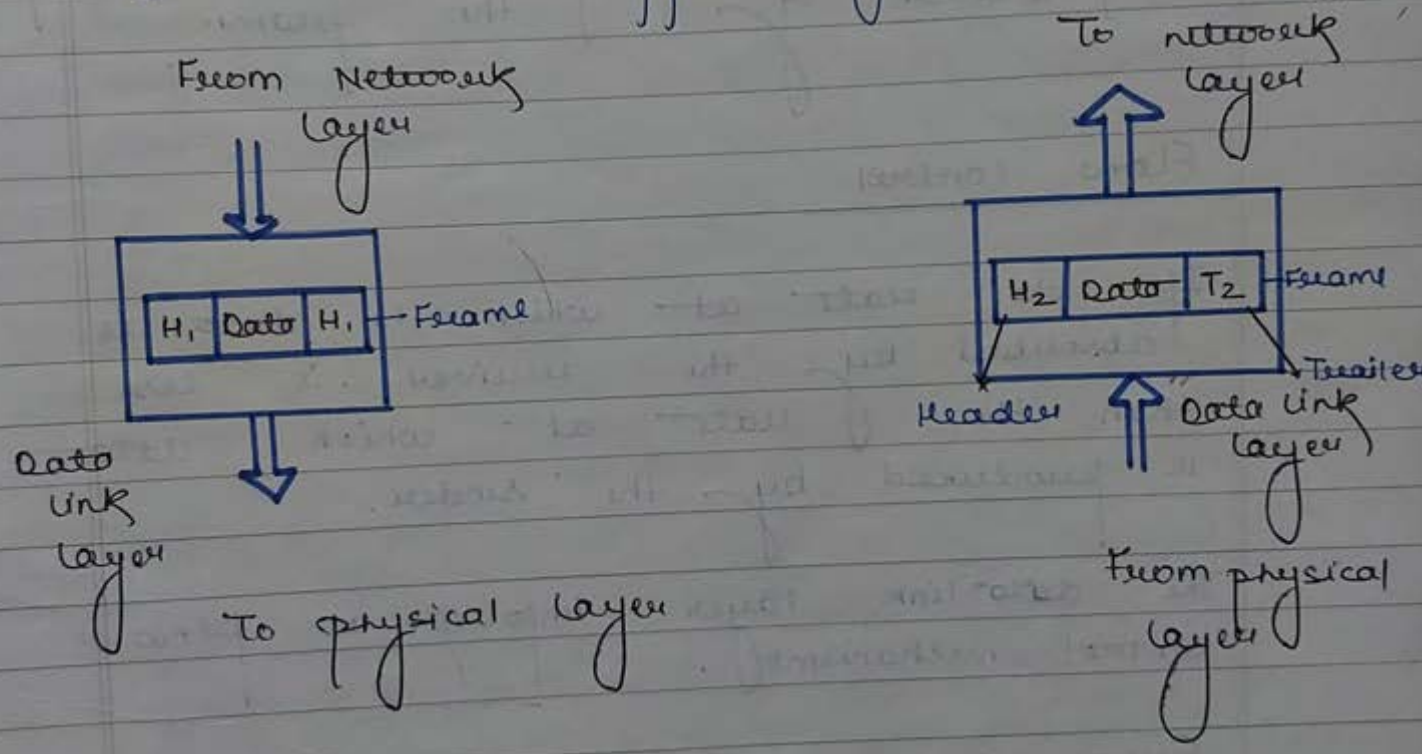 From Network
layer
H1 Data H1 Frame
Data
link
layer
To physical layer
To network
layer
H2 Data T2 Frame
Header
Trailer
Data link
layer
From physical
layer